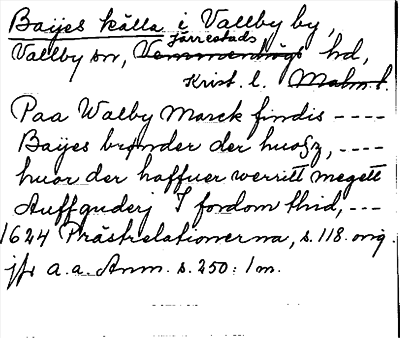 Baijes källa i Vallby by,
Järrestads
Vallby sn, Vemmenhögs hd,
Krist. l. Malm. l.
Paa Walby Marck findis ----
Baijes brønder der huosz,----
huor der haffuer werritt megett
Auffguderj I fordom thid,---
1624 Prästrelationerna, s. 118. orig.
jfr a.a. Anm. s. 250: 1 m.